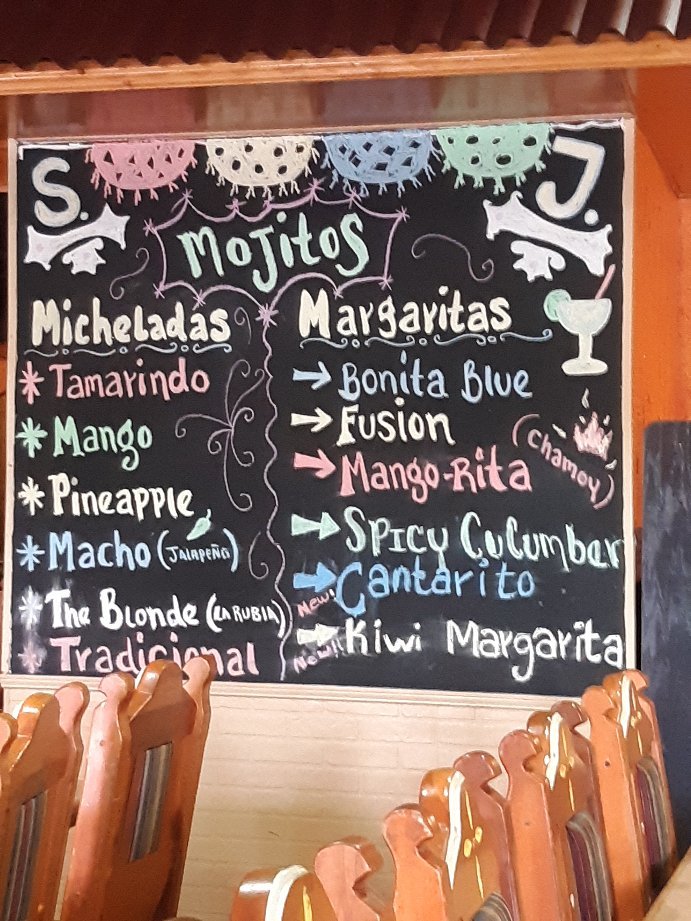 S. J.
Mojitos
Micheladas
Tamarindo
Mango
Pineapple
Macho (JALAPEÑO)
The Blonde (LA RUBIA)
Tradicional
Margaritas
Bonita Blue
Fusion
Mango-Rita
(Chamoy)
Spicy Cucumber
Cantarito
New!
Kiwi Margarita
New!!